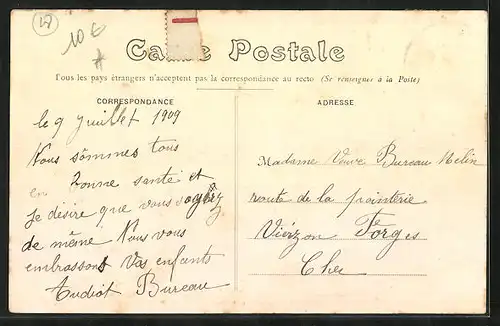 10 €
Carte Postale
Tous les pays étrangers n'acceptent pas la correspondance au recto (Se renseigner à la Poste)
CORRESPONDANCE
le 9 Juillet 1909
Nous sommes tous
en bonne santé et
je désire que vous soyez
de même Nous vous
embrassons Vos enfants
Audiot Bureau
ADRESSE
Madame Veuve Bureau Melin
route de la pointerie
Vierzon Forges
Cher